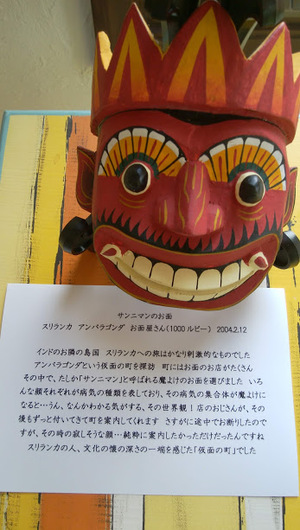 サンニマンのお面
スリランカ アンバラゴンダ お面屋さん(1000ルピー) 2004.2.12
インドのお隣の島国 スリランカへの旅はかなり刺激的なものでした
アンバラゴンダという仮面の町を探訪 町にはお面のお店がたくさん
その中で、たしか「サンニマン」と呼ばれる魔よけのお面を選びました いろ
んな顔それぞれが病気の種類を表しており、その病気の集合体が魔よけに
なると…うん、なんかわかる気がする、その世界観！店のおじさんが、その
後もずっと付いてきて町を案内してくれます さすがに途中でお断りしたので
すが、その時の寂しそうな顔…純粋に案内したかっただけだったんですね
スリランカの人、文化の懐の深さの一端を感じた「仮面の町」でした